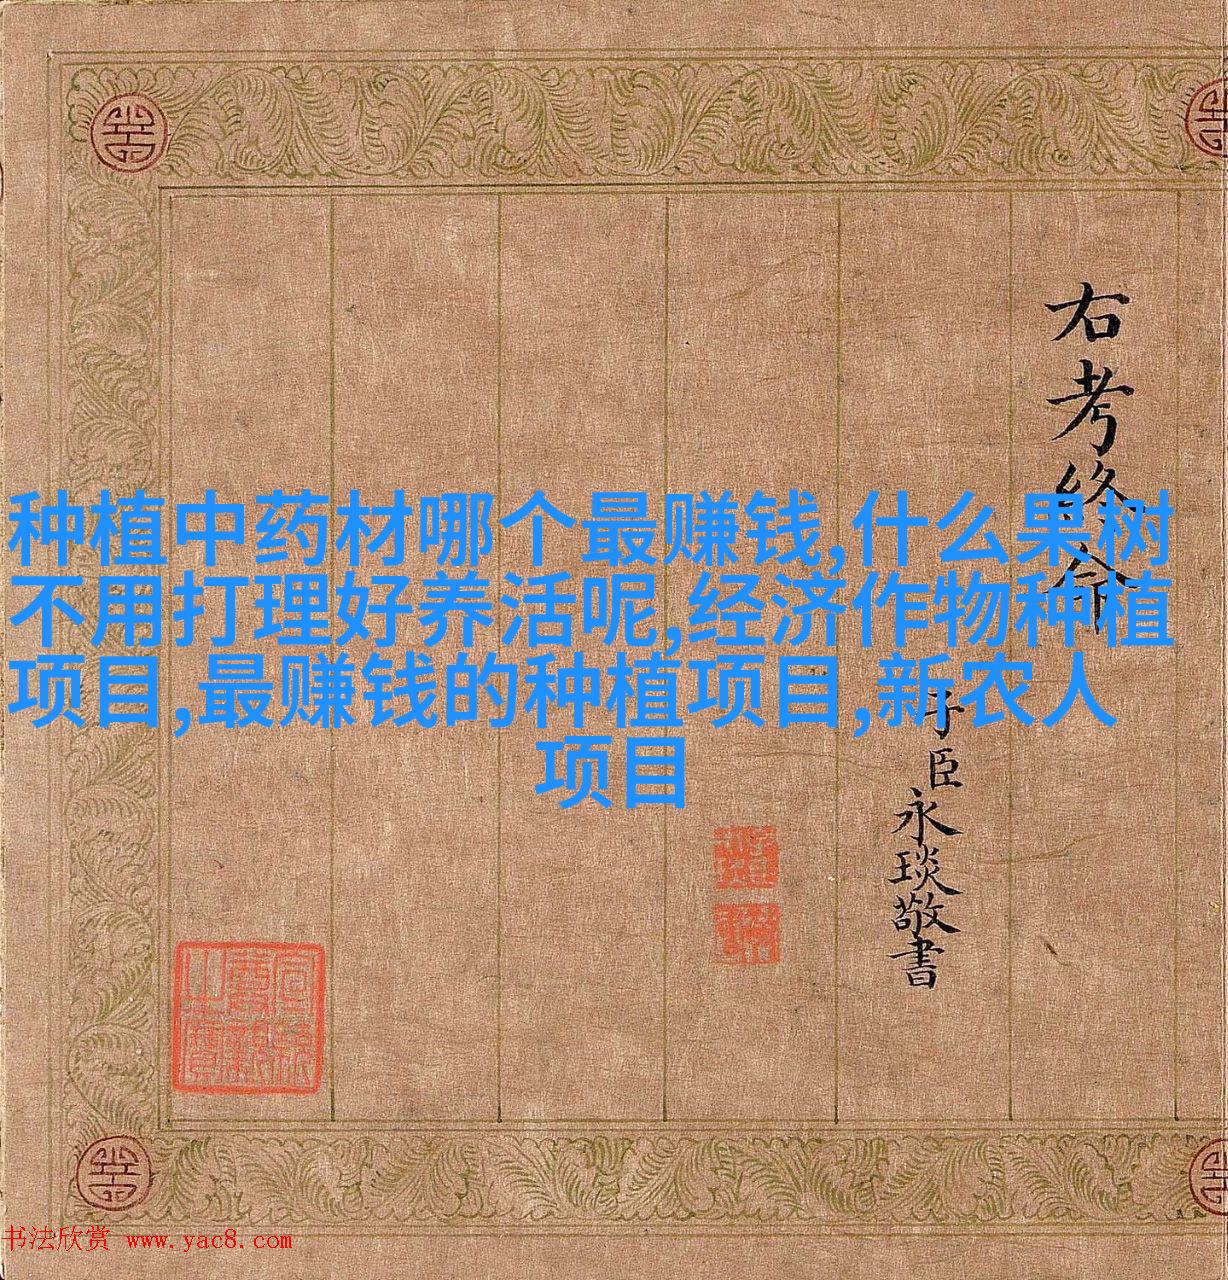 种植中药材哪个最赚钱,什么果树
不用打理好养活呢,经济作物种植
项目,最赚钱的种植项目,新农人
项目
右考终命
子臣永琰敬書
书法欣赏 www.yac8.com